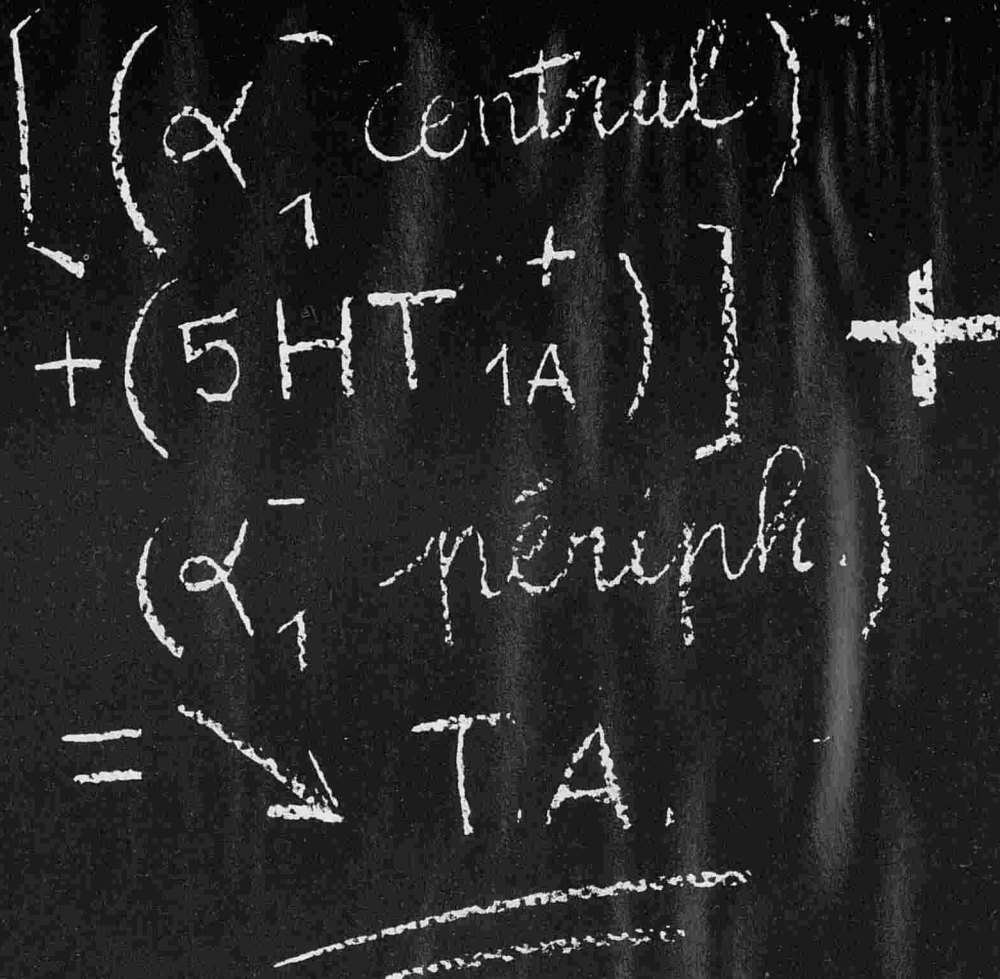 [(α₁⁻ central)
+(5HT₁ₐ⁺)] +
(α₁⁻ périph.)
= ↘ T.A.